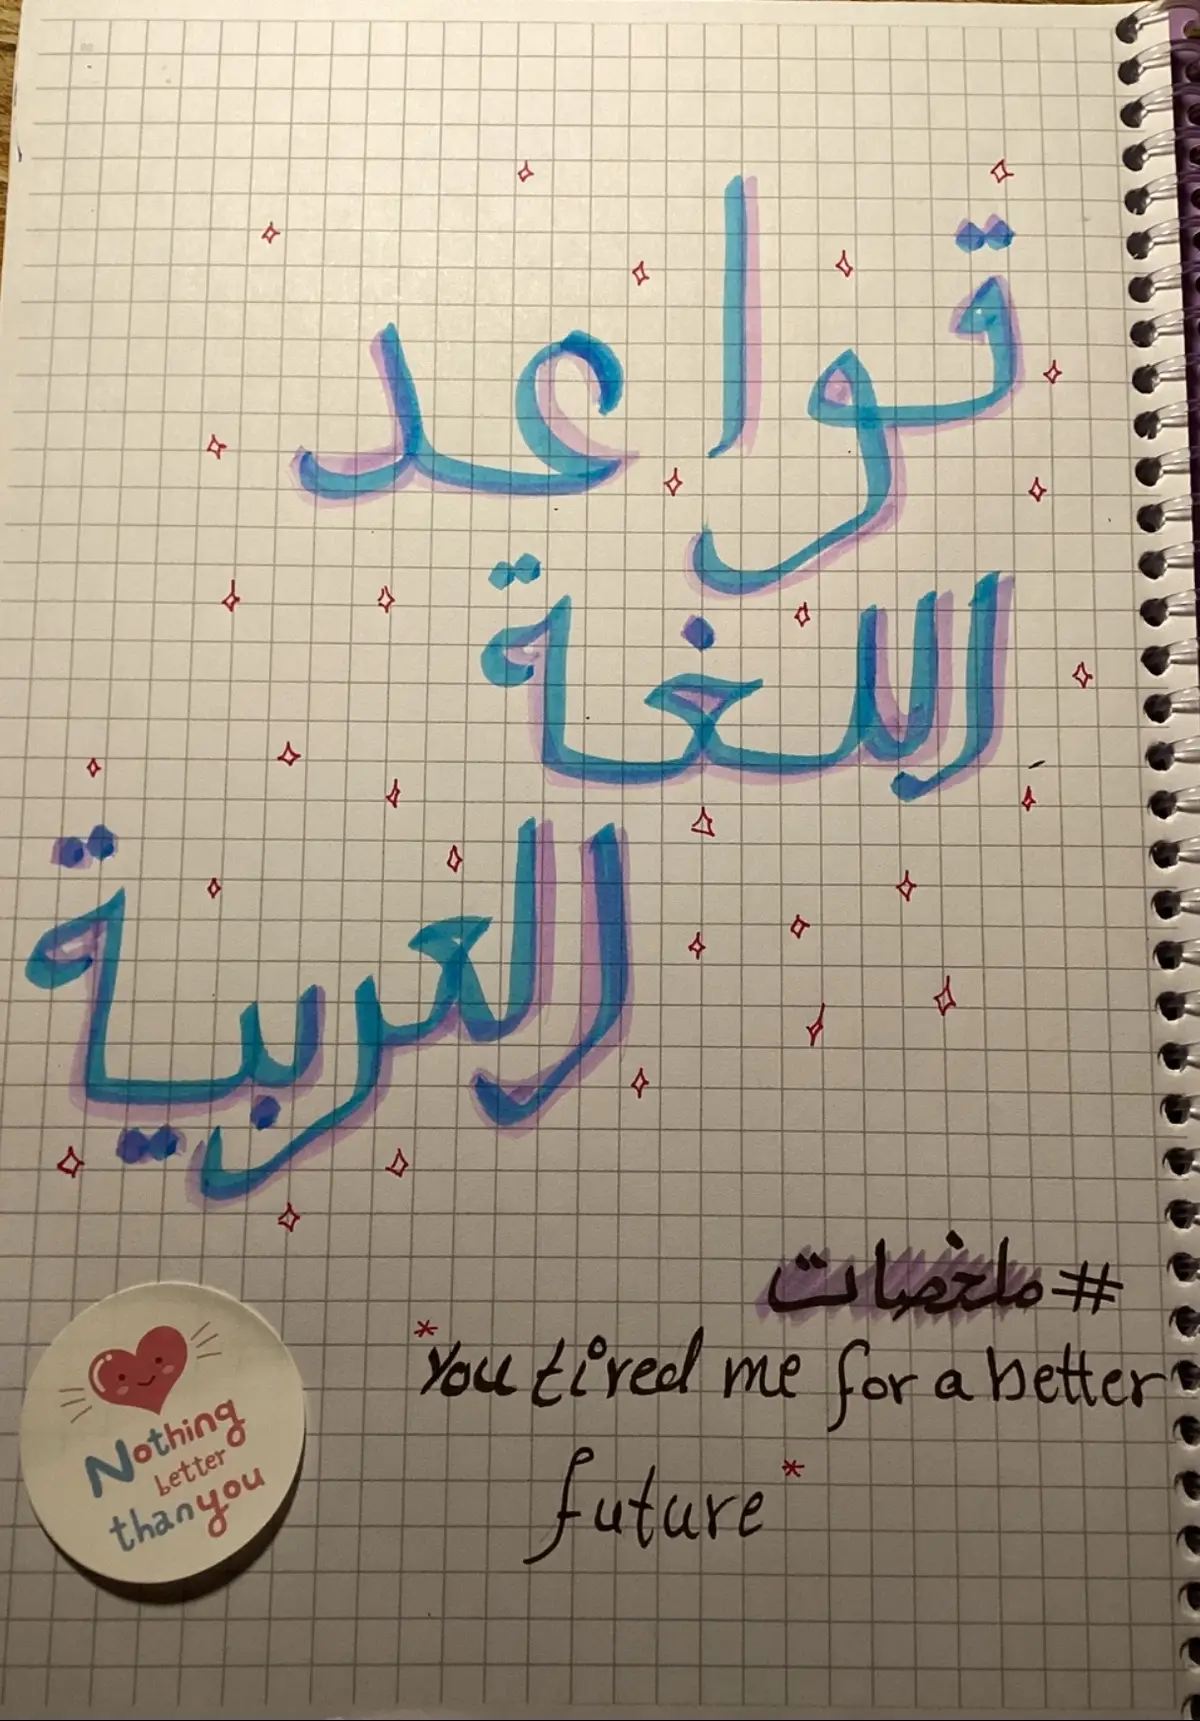 قواعد
اللغة
العربية
#ملخصات
*You tired me for a better
future*
Nothing
better
than you